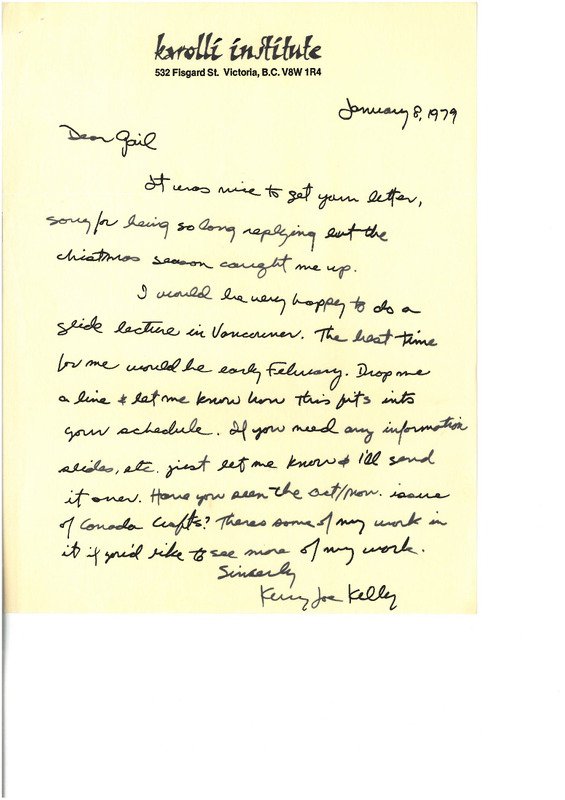 karolli institute
532 Fisgard St. Victoria, B.C. V8W 1R4
January 8, 1979
Dear Gail
It was nice to get your letter,
sorry for being so long replying but the
christmas season caught me up.
I would be very happy to do a
slide lecture in Vancouver. The best time
for me would be early February. Drop me
a line & let me know how this fits into
your schedule. If you need any information
slides, etc. just let me know & I'll send
it over. Have you seen the Oct/Nov. issue
of Canada Crafts? Theres some of my work in
it if you'd like to see more of my work.
Sincerly
Kerry Joe Kelly